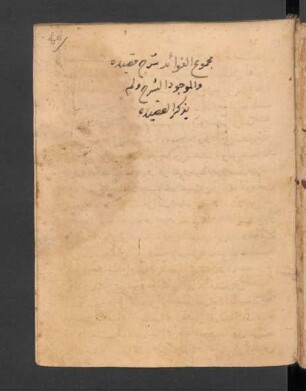 مجموع الفوائد شرح قصيده
والموجود الشرح ولم
يذكر القصيده